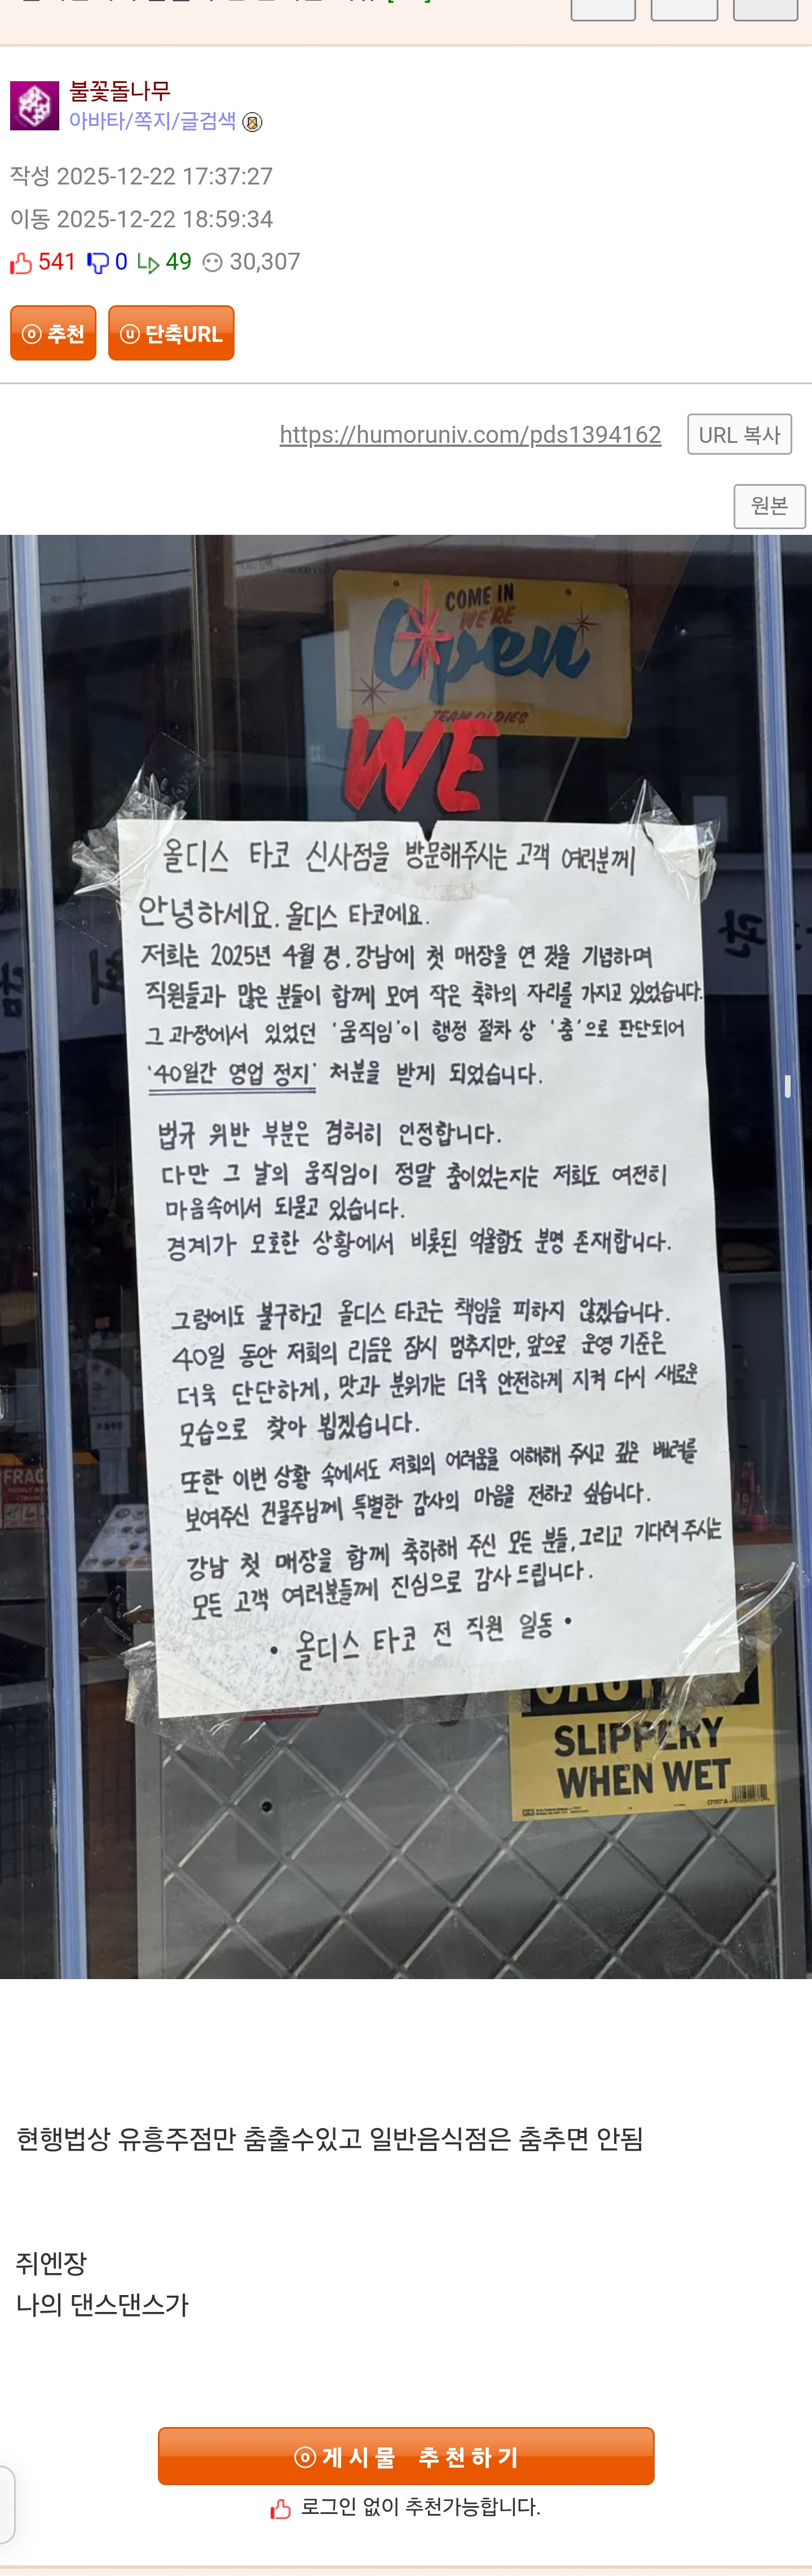 불꽃돌나무
아바타/쪽지/글검색
작성 2025-12-22 17:37:27
이동 2025-12-22 18:59:34
541 0 49 30,307
추천 단축URL
https://humoruniv.com/pds1394162 URL 복사
원본
COME IN
WE'RE
Open
TEAM OLDIES
WE
올디스 타코 신사점을 방문해주시는 고객 여러분께
안녕하세요. 올디스 타코에요.
저희는 2025년 4월 경, 강남에 첫 매장을 연 것을 기념하며
직원들과 많은 분들이 함께 모여 작은 축하의 자리를 가지고 있었습니다.
그 과정에서 있었던 '움직임'이 행정 절차 상 '춤'으로 판단되어
'40일간 영업 정지' 처분을 받게 되었습니다.
법규 위반 부분은 겸허히 인정합니다.
다만 그 날의 움직임이 정말 춤이었는지는 저희도 여전히
마음속에서 되묻고 있습니다.
경계가 모호한 상황에서 비롯된 억울함도 분명 존재합니다.
그럼에도 불구하고 올디스 타코는 책임을 피하지 않겠습니다.
40일 동안 저희의 리듬은 잠시 멈추지만, 앞으로 운영 기준은
더욱 단단하게, 맛과 분위기는 더욱 안전하게 지켜 다시 새로운
모습으로 찾아 뵙겠습니다.
또한 이번 상황 속에서도 저희의 어려움을 이해해 주시고 깊은 배려를
보여주신 건물주님께 특별한 감사의 마음을 전하고 싶습니다.
강남 첫 매장을 함께 축하해 주신 모든 분들, 그리고 기다려 주시는
모든 고객 여러분들께 진심으로 감사 드립니다.
• 올디스 타코 전 직원 일동 •
FRAG
CAUTION
SLIPPERY
WHEN WET
현행법상 유흥주점만 춤출수있고 일반음식점은 춤추면 안됨
쥐엔장
나의 댄스댄스가
게시물 추천하기
로그인 없이 추천가능합니다.